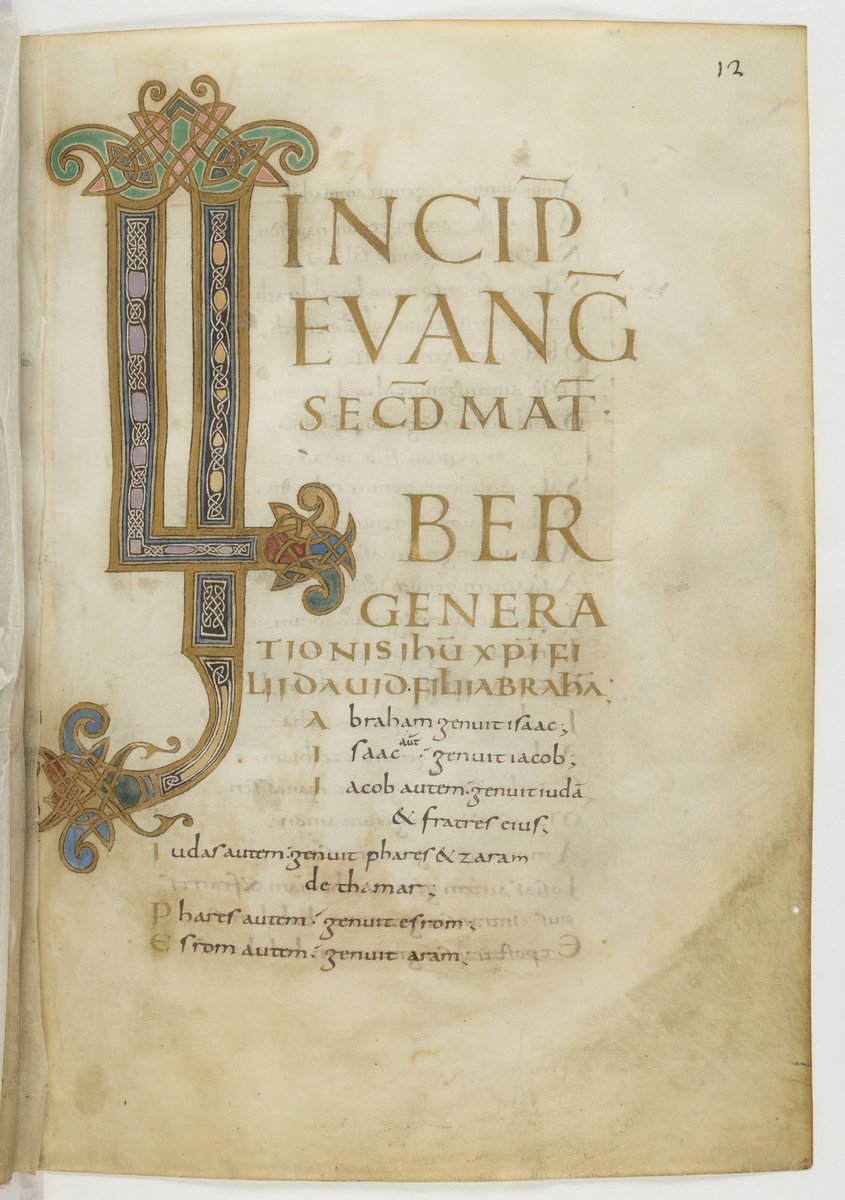 12
INCIP̄
EVANḠ
SEC̄D MAT̄·
LIBER
GENERA
TIONIS IHŪ XP̄I FI
LII DAVID. FILII ABRAHĀ;
Abraham genuit isaac;
Isaac aūt · genuit iacob;
Iacob autem · genuit iudā
& fratres eius;
Iudas autem · genuit phares & zaram
de thamar;
Phares autem · genuit esrom;
Esrom autem · genuit aram;